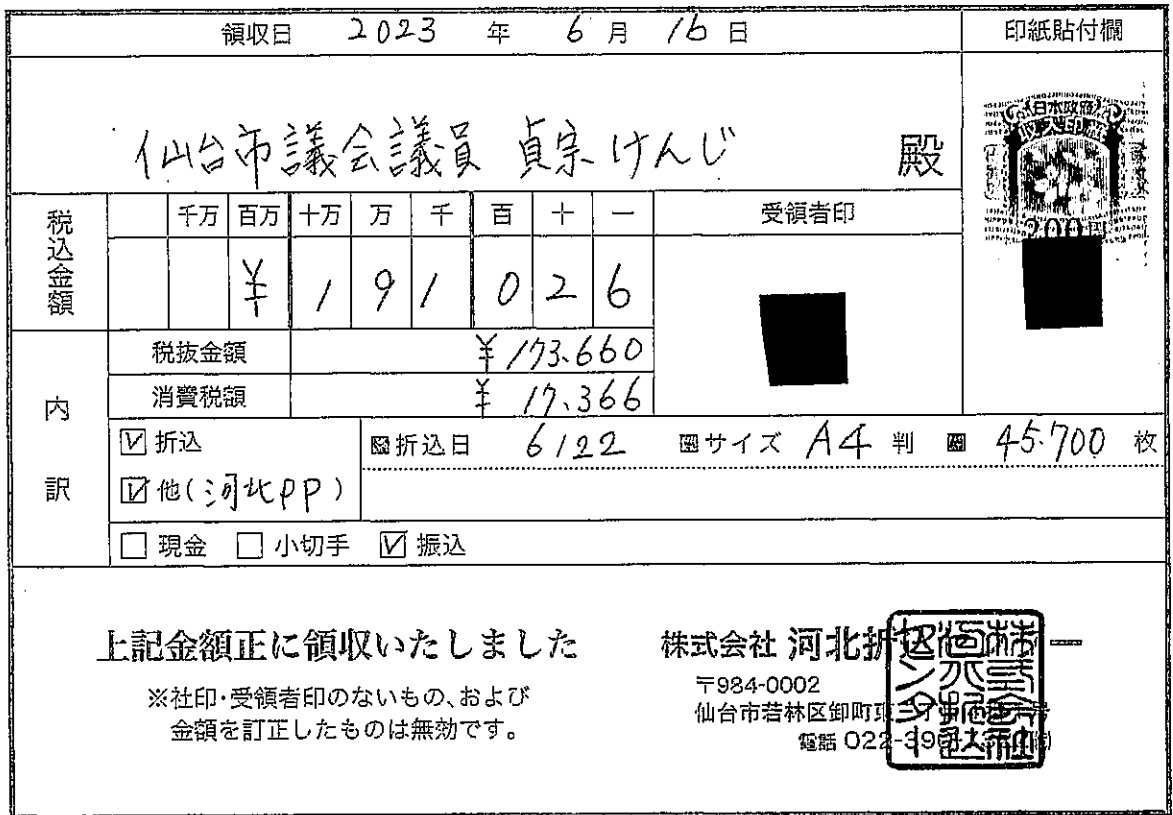 領収日 2023 年 6 月 16 日 印紙貼付欄
仙台市議会議員 貞宗けんじ 殿
日本政府
収入印紙
200円
税込金額 千万 百万 十万 万 千 百 十 一 受領者印
¥ 1 9 1 0 2 6
内訳
税抜金額 ¥173.660
消費税額 ¥ 17.366
☑ 折込 折込日 6/22 サイズ A4 判 45.700 枚
☑ 他(河北PP)
□ 現金 □ 小切手 ☑ 振込
上記金額正に領収いたしました
※社印・受領者印のないもの、および
金額を訂正したものは無効です。
株式会社 河北折込センター
〒984-0002
仙台市若林区卸町東
電話 022-390-
株式会社河北折込センター